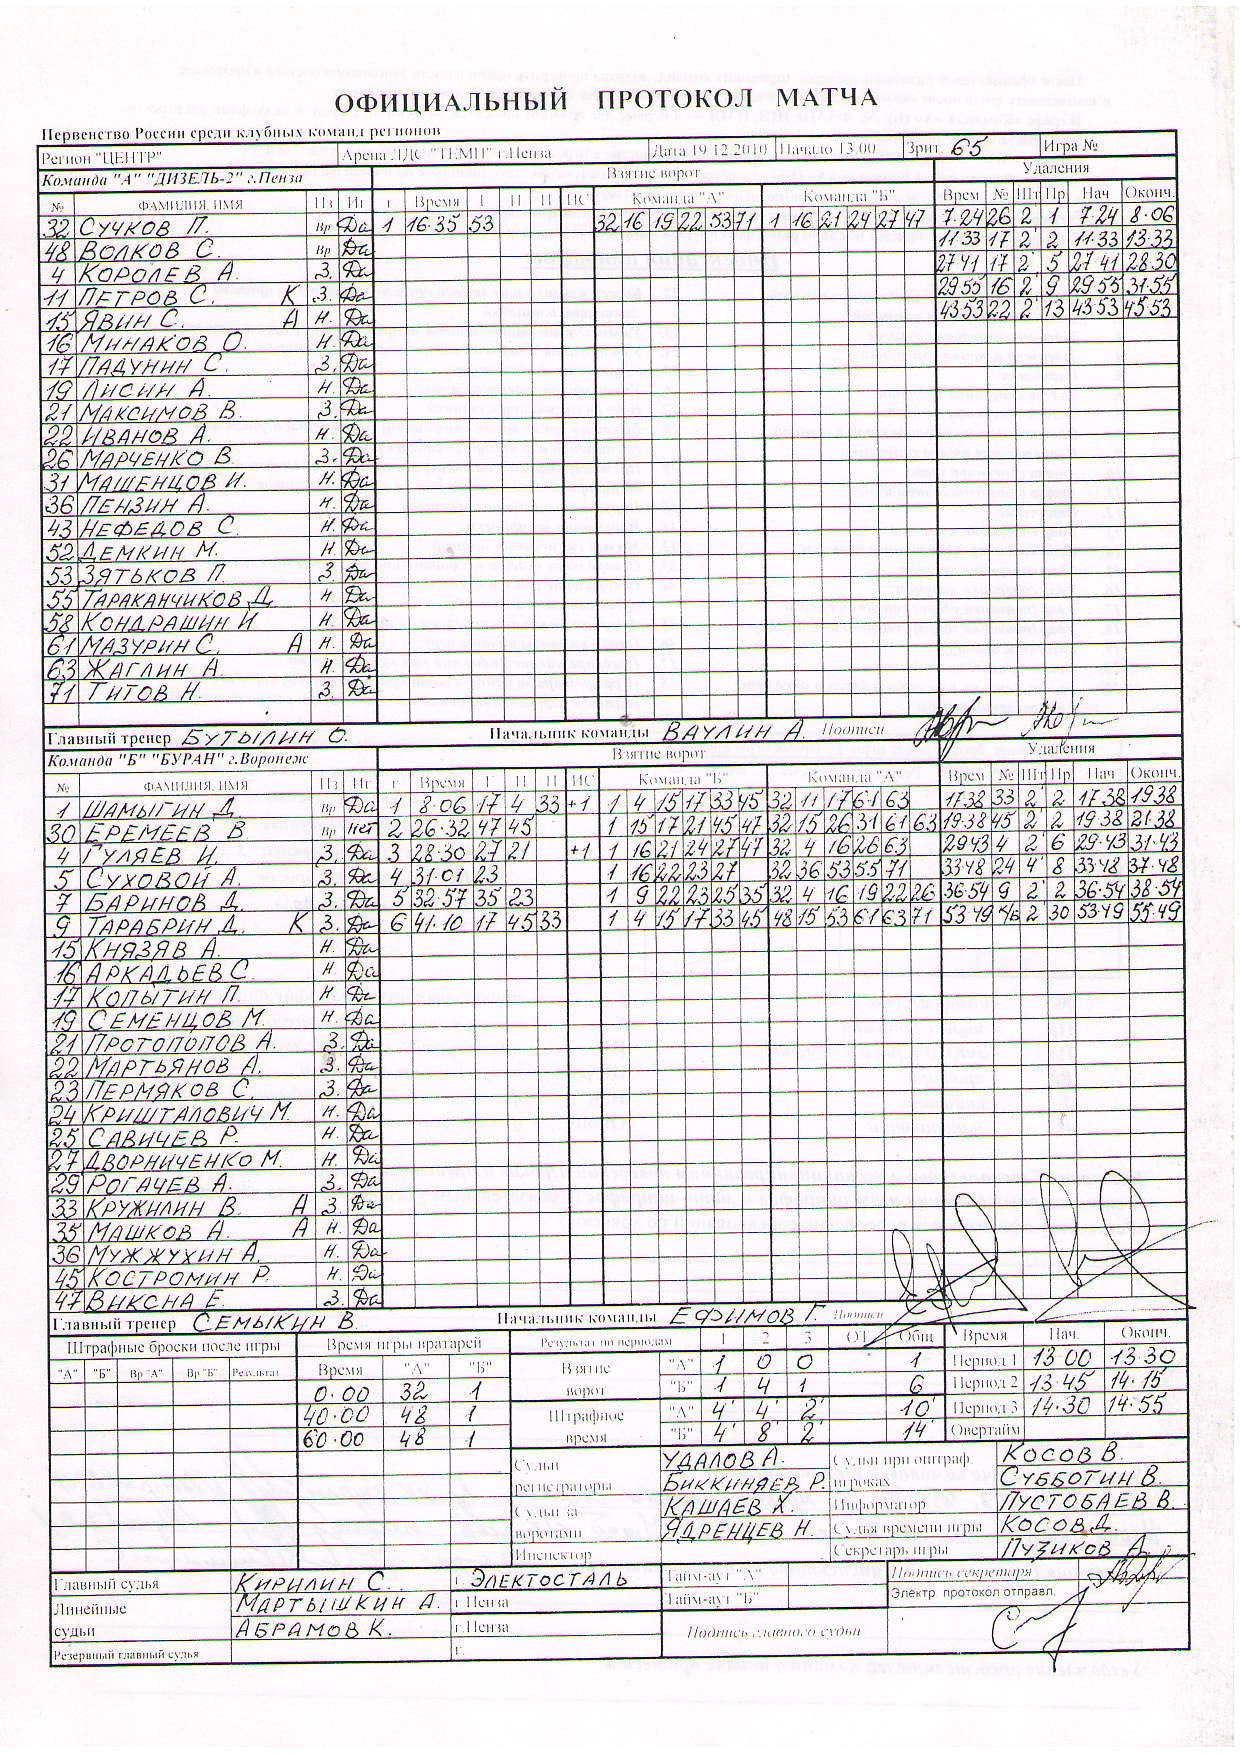 ОФИЦИАЛЬНЫЙ ПРОТОКОЛ МАТЧА
Первенство России среди клубных команд регионов
Регион "ЦЕНТР" Арена ЛДС "ТЕМП" г.Пенза Дата 19.12.2010 Начало 13.00 Зрит. 65 Игра №
Команда "А" "ДИЗЕЛЬ-2" г.Пенза Взятие ворот Удаления
№ ФАМИЛИЯ, ИМЯ Пз Иг г Время Г П П ИС Команда "А" Команда "Б" Врем № Шт Пр Нач Оконч.
32 СУЧКОВ П. Вр Да 1 16·35 53 32 16 19 22 53 71 1 16 21 24 27 47 7·24 26 2' 1 7·24 8·06
48 ВОЛКОВ С. Вр Да 11·33 17 2' 2 11·33 13·33
4 КОРОЛЕВ А. З. Да 27·41 17 2' 5 27·41 28·30
11 ПЕТРОВ С. К З. Да 29·55 16 2' 9 29·55 31·55
15 ЯВИН С. А Н. Да 43·53 22 2' 13 43·53 45·53
16 МИНАКОВ О. Н. Да
17 ПАДУНИН С. З. Да
19 ЛИСИН А. Н. Да
21 МАКСИМОВ В. З. Да
22 ИВАНОВ А. Н. Да
26 МАРЧЕНКО В. З. Да
31 МАШЕНЦОВ И. Н. Да
36 ПЕНЗИН А. Н. Да
43 НЕФЕДОВ С. Н. Да
52 ДЕМКИН М. Н. Да
53 ЗЯТЬКОВ П. З. Да
55 ТАРАКАНЧИКОВ Д. Н. Да
58 КОНДРАШИН И. Н. Да
61 МАЗУРИН С. А Н. Да
63 ЖАГЛИН А. Н. Да
71 ТИТОВ Н. З. Да
Главный тренер БУТЫЛИН О. Начальник команды ВАУЛИН А. Подписи
Команда "Б" "БУРАН" г.Воронеж Взятие ворот Удаления
№ ФАМИЛИЯ, ИМЯ Пз Иг г Время Г П П ИС Команда "Б" Команда "А" Врем № Шт Пр Нач Оконч.
1 ШАМЫГИН Д. Вр Да 1 8·06 17 4 33 +1 1 4 15 17 33 45 32 11 17 61 63 17·38 33 2' 2 17·38 19·38
30 ЕРЕМЕЕВ В. Вр Нет 2 26·32 47 45 1 15 17 21 45 47 32 15 26 31 61 63 19·38 45 2' 2 19·38 21·38
4 ГУЛЯЕВ И. З. Да 3 28·30 27 21 +1 1 16 21 24 27 47 32 4 16 26 63 29·43 4 2' 6 29·43 31·43
5 СУХОВОЙ А. З. Да 4 31·01 23 1 16 22 23 27 32 36 53 55 71 33·48 24 4' 8 33·48 37·48
7 БАРИНОВ Д. З. Да 5 32·57 35 23 1 9 22 23 25 35 32 4 16 19 22 26 36·54 9 2' 2 36·54 38·54
9 ТАРАБРИН Д. К З. Да 6 41·10 17 45 33 1 4 15 17 33 45 48 15 53 61 63 71 53·49 К/Б 2' 30 53·49 55·49
15 КНЯЗЯВ А. Н. Да
16 АРКАДЬЕВ С. Н. Да
17 КОПЫТИН П. Н. Да
19 СЕМЕНЦОВ М. Н. Да
21 ПРОТОПОПОВ А. З. Да
22 МАРТЬЯНОВ А. З. Да
23 ПЕРМЯКОВ С. З. Да
24 КРИШТАЛОВИЧ М. Н. Да
25 САВИЧЕВ Р. Н. Да
27 ДВОРНИЧЕНКО М. Н. Да
29 РОГАЧЕВ А. З. Да
33 КРУЖИЛИН В. А З. Да
35 МАШКОВ А. А Н. Да
36 МУЖЖУХИН А. Н. Да
45 КОСТРОМИН Р. Н. Да
47 ВИКСНА Е. З. Да
Главный тренер СЕМЫКИН В. Начальник команды ЕФИМОВ Г. Подписи
Штрафные броски после игры Время игры вратарей Результат по периодам 1 2 3 ОТ Общ Время Нач. Оконч.
"А" "Б" Вр "А" Вр "Б" Результат Время "А" "Б" Взятие ворот "А" 1 0 0 1 Период 1 13·00 13·30
0·00 32 1 "Б" 1 4 1 6 Период 2 13·45 14·15
40·00 48 1 Штрафное время "А" 4' 4' 2' 10' Период 3 14·30 14·55
60·00 48 1 "Б" 4' 8' 2' 14' Овертайм
Судьи регистраторы УДАЛОВ А. Судьи при оштраф. игроках КОСОВ В.
БИККИНЯЕВ Р. СУББОТИН В.
Судьи за воротами КАШАЕВ Х. Информатор ПУСТОБАЕВ В.
ЯДРЕНЦЕВ Н. Судья времени игры КОСОВ Д.
Инспектор Секретарь игры ПУЗИКОВ А.
Главный судья КИРИЛИН С. г. ЭЛЕКТОСТАЛЬ Тайм-аут "А" Подпись секретаря
Линейные судьи МАРТЫШКИН А. г.Пенза Тайм-аут "Б" Электр. протокол отправл.
АБРАМОВ К. г.Пенза Подпись главного судьи
Резервный главный судья г.